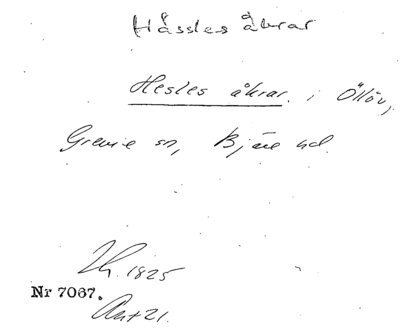 Hässles åkrar
Hesles åkrar. i Öllöv,
Grevie sn, Bjäre hd.
Lh. 1825
Nr 7067.
Akt 21.